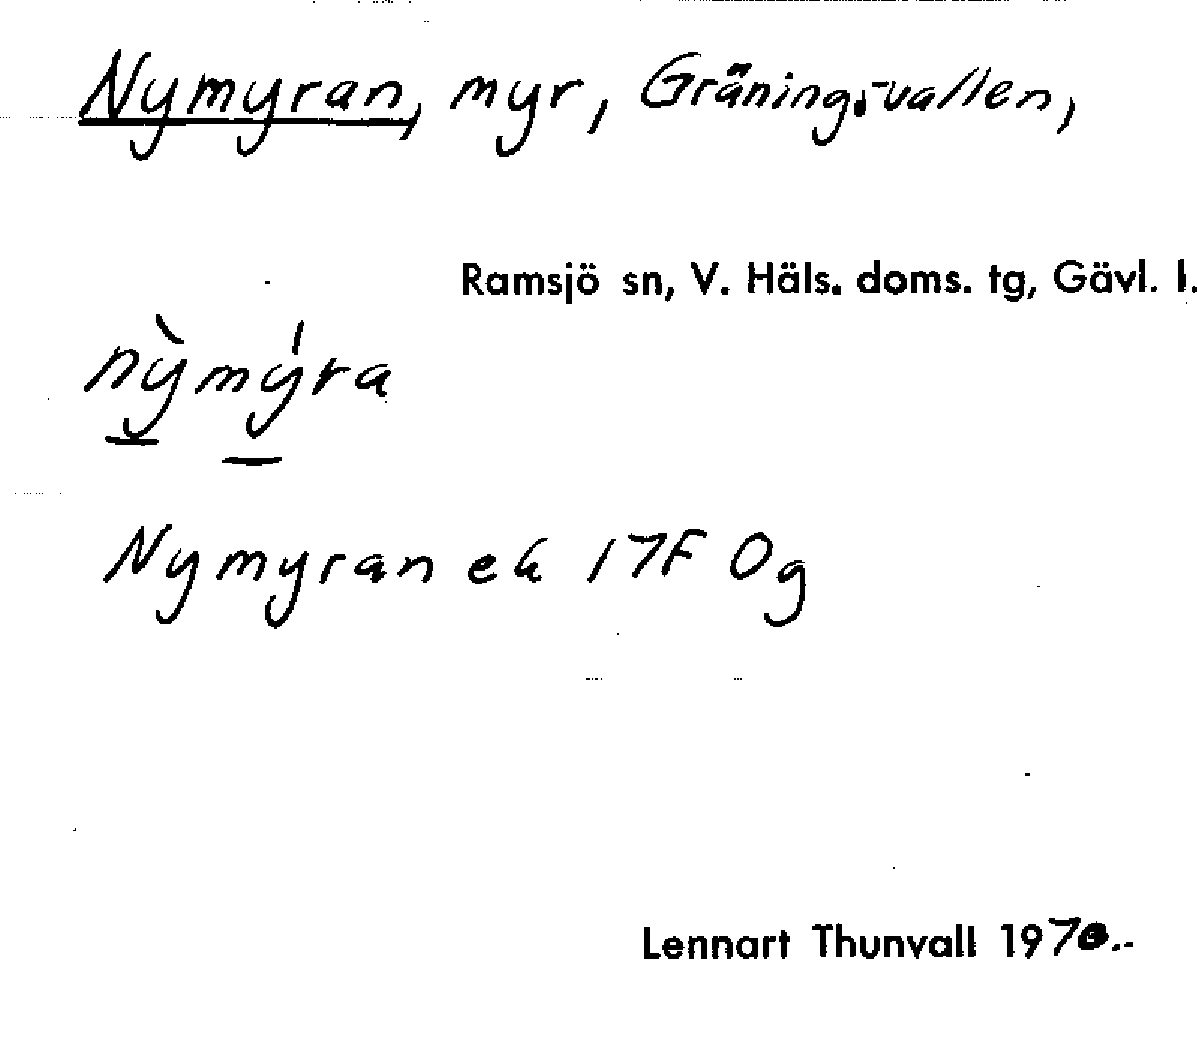 Nymyran, myr, Gräningsvallen,
Ramsjö sn, V. Häls. doms. tg, Gävl. l.
nỳmýra
Nymyran ek 17F 0g
Lennart Thunvall 1970